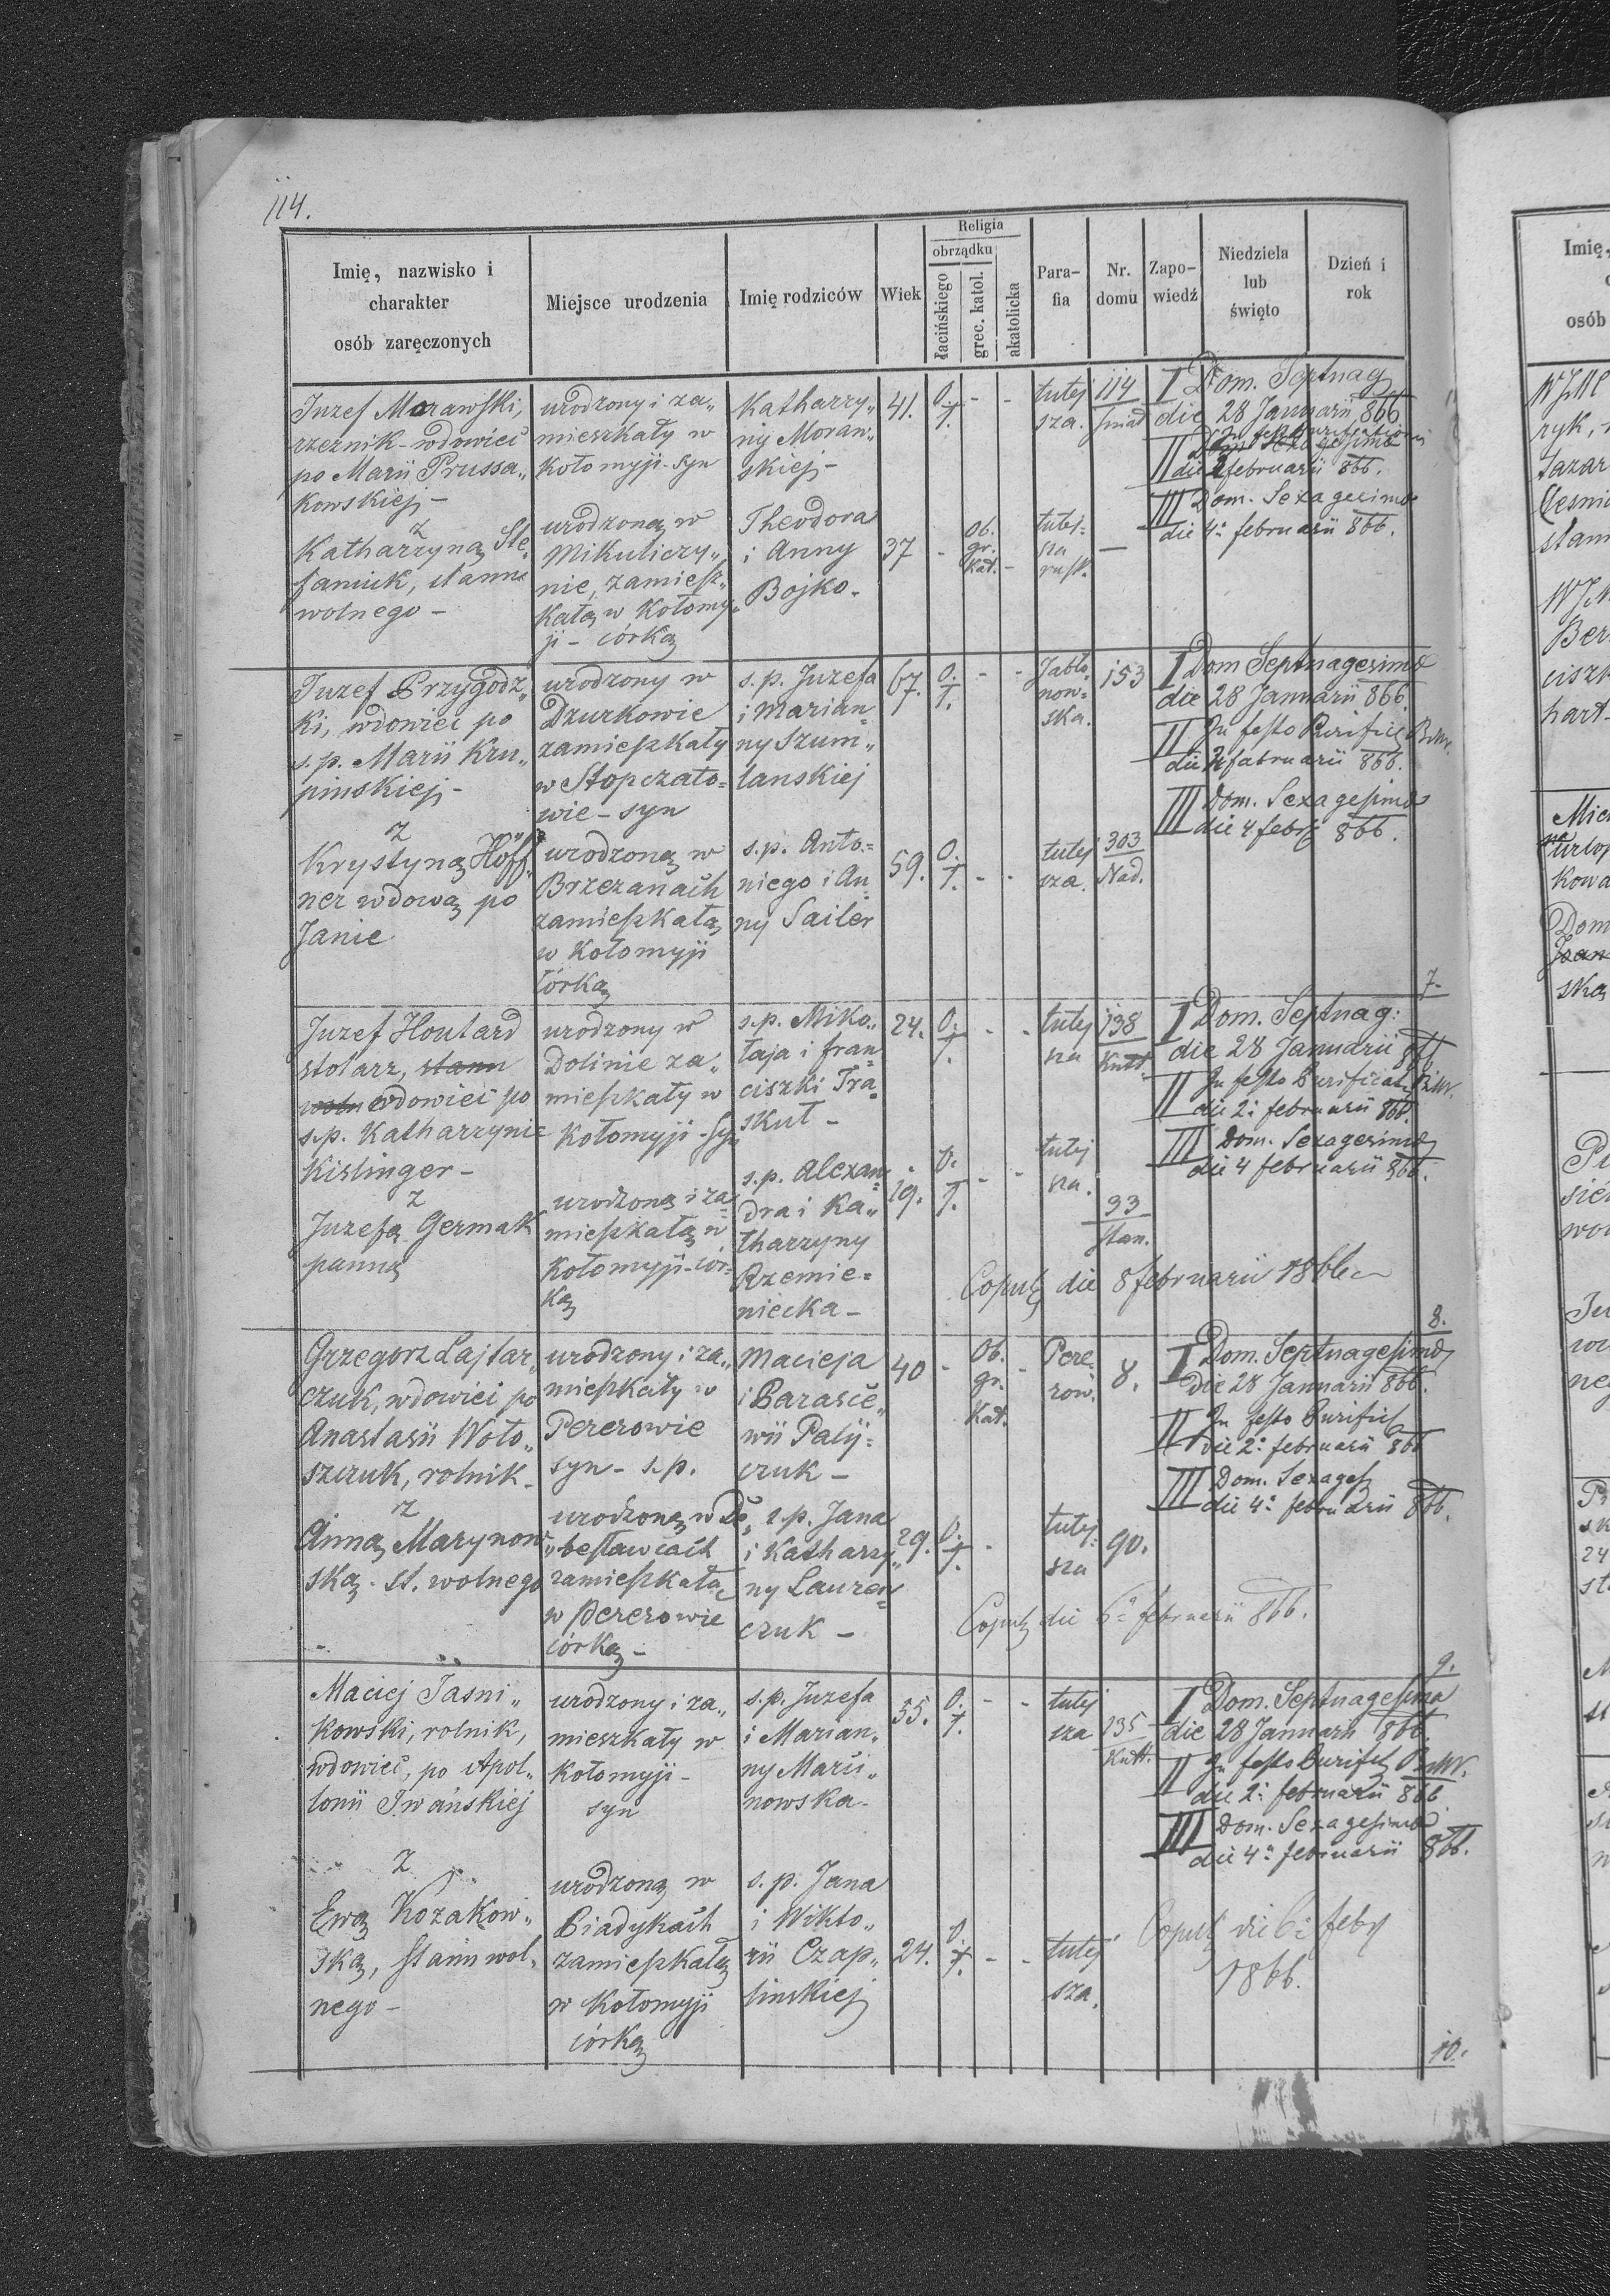 114.
Imię, nazwisko i
charakter
osób zaręczonych
Miejsce urodzenia
Imię rodziców
Wiek
Religia
obrządku
łacińskiego
grec. katol.
akatolicka
Para-
fia
Nr.
domu
Zapo-
wiedź
Niedziela
lub
święto
Dzień i
rok
Juzef Morawski,
rzeznik - wdowiec
po Marii Prussa„
kowskiej -
z
Katharzyną Ste„
faniuk, stanu
wolnego -
urodzony i za„
mieszkały w
Kołomyji - syn
urodzoną w
Mikuliczy„
nie, zamiesz„
kałą w Kołomy„
ji - córką
Katharzy„
ny Moraw„
skiej -
Theodora
i Anny
Bojko -
41.
O.
ł.
- -
37
-
Ob.
gr.
Kat.
-
tutej
sza.
tutej=
sza
rusk.
114
Śniat
—
I Dom. Septuag
die 28 Januarii 866
II
die 2 februarii 866.
III Dom. Sexagesima
die 4a februarii 866.
Juzef Przygodz„
ki, wdowiec po
s.p. Marii Kru„
pinskiej -
z
Krystyną Höff„
ner wdową po
Janie
urodzony w
Dzurkowie
zamieszkały
w Stopczato=
wie - syn
urodzoną w
Brzezanach
zamieszkałą
w Kołomyji
córką
s.p. Juzefa
i Marian=
ny Szum„
lanskiej
s.p. Anto=
niego i An
ny Sailer
67.
O.
ł.
- -
59.
O.
ł.
- -
Jabło
now=
ska.
tutej
sza.
153
303
Nad.
I Dom Septuagesima
die 28 Januarii 866.
II In festo Purific BMV.
die 2 februarii 866.
III Dom. Sexagesima
die 4 febr 866.
7.
Juzef Houtard
stolarz, stanu
woln wdowiec po
s.p. Katharzynie
Kislinger -
z
Juzefą Germak
panną
urodzony w
Dolinie za„
mieszkały w
Kołomyji - syn
urodzoną i za=
mieszkałą w
Kołomyji - cór=
ką
s.p. Miko„
łaja i Fran
ciszki Tra=
skut -
s.p. Alexan=
dra i Ka„
tharzyny
Rzemie=
niecka -
24.
O.
ł.
- -
19.
O.
ł.
- -
tutej
sza
tutej
sza.
138
Kutt.
93
Stan.
I Dom. Septuag:
die 28 Januarii 866
II In festo Purificat BMV.
die 2a februarii 866.
III Dom. Sexagesima
die 4 februarii 866.
Copul die 8 februarii 1866
8.
Grzegorz Lajtar„
czuk, wdowiec po
Anastasii Woło„
szczuk, rolnik -
z
Anną Marynow„
ską - st. wolnego
urodzony i za„
mieszkały w
Pererowie
syn - s.p.
urodzoną w Do„
„besławcach
zamieszkałą
w Pererowie
córką -
Macieja
i Parasce„
wii Palij=
czuk -
s.p. Jana
i Katharzy„
ny Lauren=
czuk -
40
-
Ob.
gr.
Kat.
-
29.
O.
ł.
-
Pere
row.
tutej=
sza
8.
90.
I Dom. Septuagesima
die 28 Januarii 866.
II In festo Purific
die 2a februarii 866
III Dom. Sexages
die 4a februarii 866.
Copul die 6a februarii 866.
9.
Maciej Jasni„
kowski, rolnik,
wdowiec, po Apol„
lonii Iwańskiej
z
Ewą Kozakow„
ską, stanu wol„
nego -
urodzony i za„
mieszkały w
Kołomyji -
syn
urodzoną w
Piadykach
zamieszkałą
w Kołomyji
córką
s.p. Juzefa
i Marian„
ny Marci„
nowska -
s.p. Jana
i Wikto„
rii Czap„
linskiej
55.
O.
ł.
- -
24.
O.
ł.
- -
tutej
sza
tutej
sza.
135
Kutt.
I Dom. Septuagesima
die 28 Januarii 866.
II In festo Purific BMV.
die 2a februarii 866
III Dom. Sexagesima
die 4a februarii 866.
Copul die 6a febr
1866.
10.
Imię,
osób